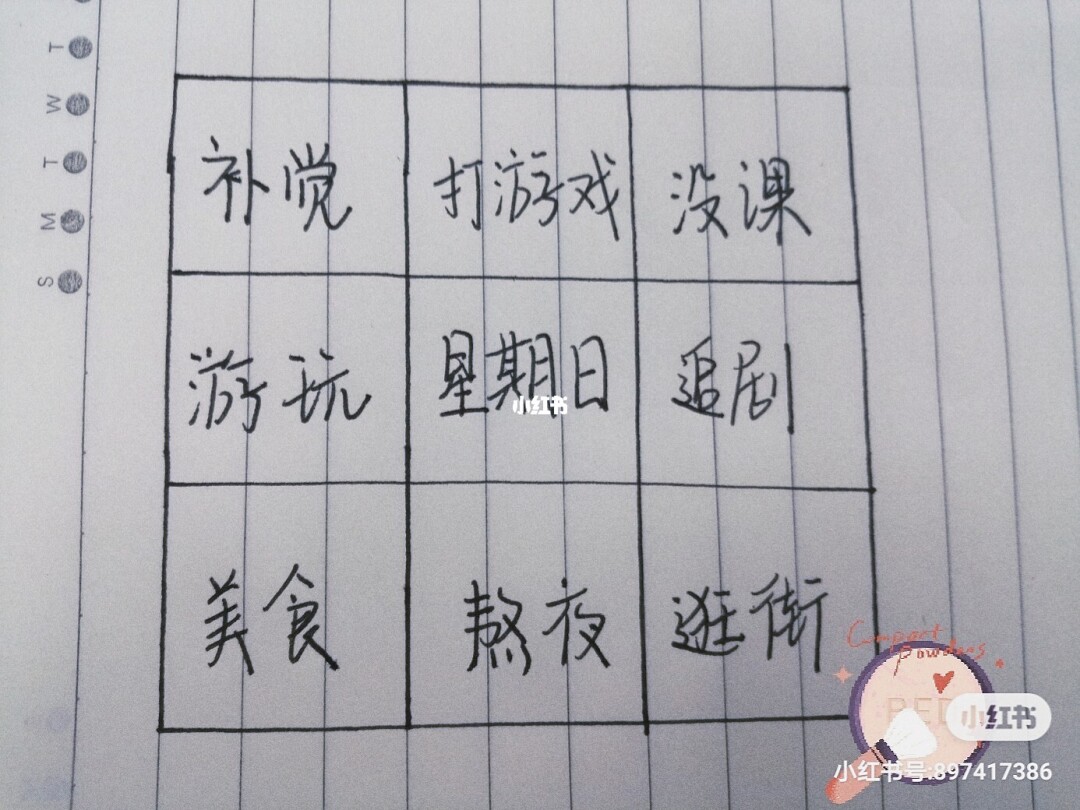 T
W
T
M
S
补觉 打游戏 没课
游玩 星期日 追剧
小红书
美食 熬夜 逛街
Comport
Powders
RED
小红书
小红书号:897417386